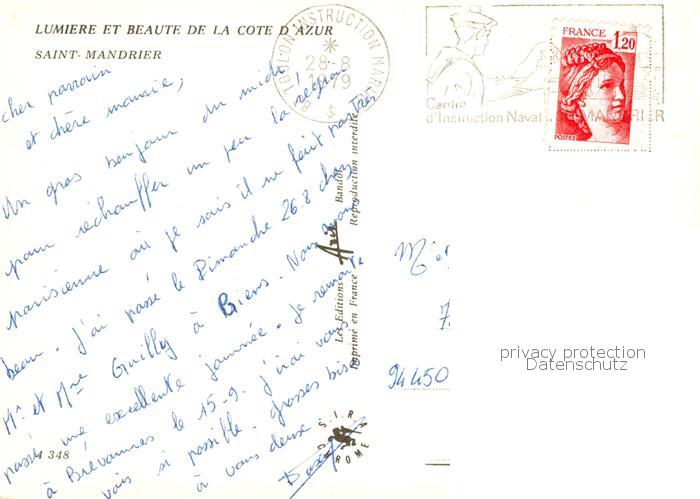 LUMIERE ET BEAUTE DE LA COTE D'AZUR
SAINT-MANDRIER
cher parrain
et chère marraine,
Un gros bonjour du midi
pour réchauffer un peu la région
parisienne où je sais il ne fait pas très
beau. J'ai passé le Dimanche 26.8 chez
Mr et Mme Guilly à Biens. Nous avons
passé une excellente journée. Je remonte
à Brévannes le 15-9. J'irai vous
voir si possible. grosses bises
à vous deux
4 348
Les Editions Azir Bandol
Imprimé en France Reproduction interdite
S.I.R.
ROME
TOULON INSTRUCTION MARINE
28-8
1979
Centre
d'Instruction Naval MANDRIER
FRANCE
1,20
POSTES
M et
7
94450
privacy protection
Datenschutz